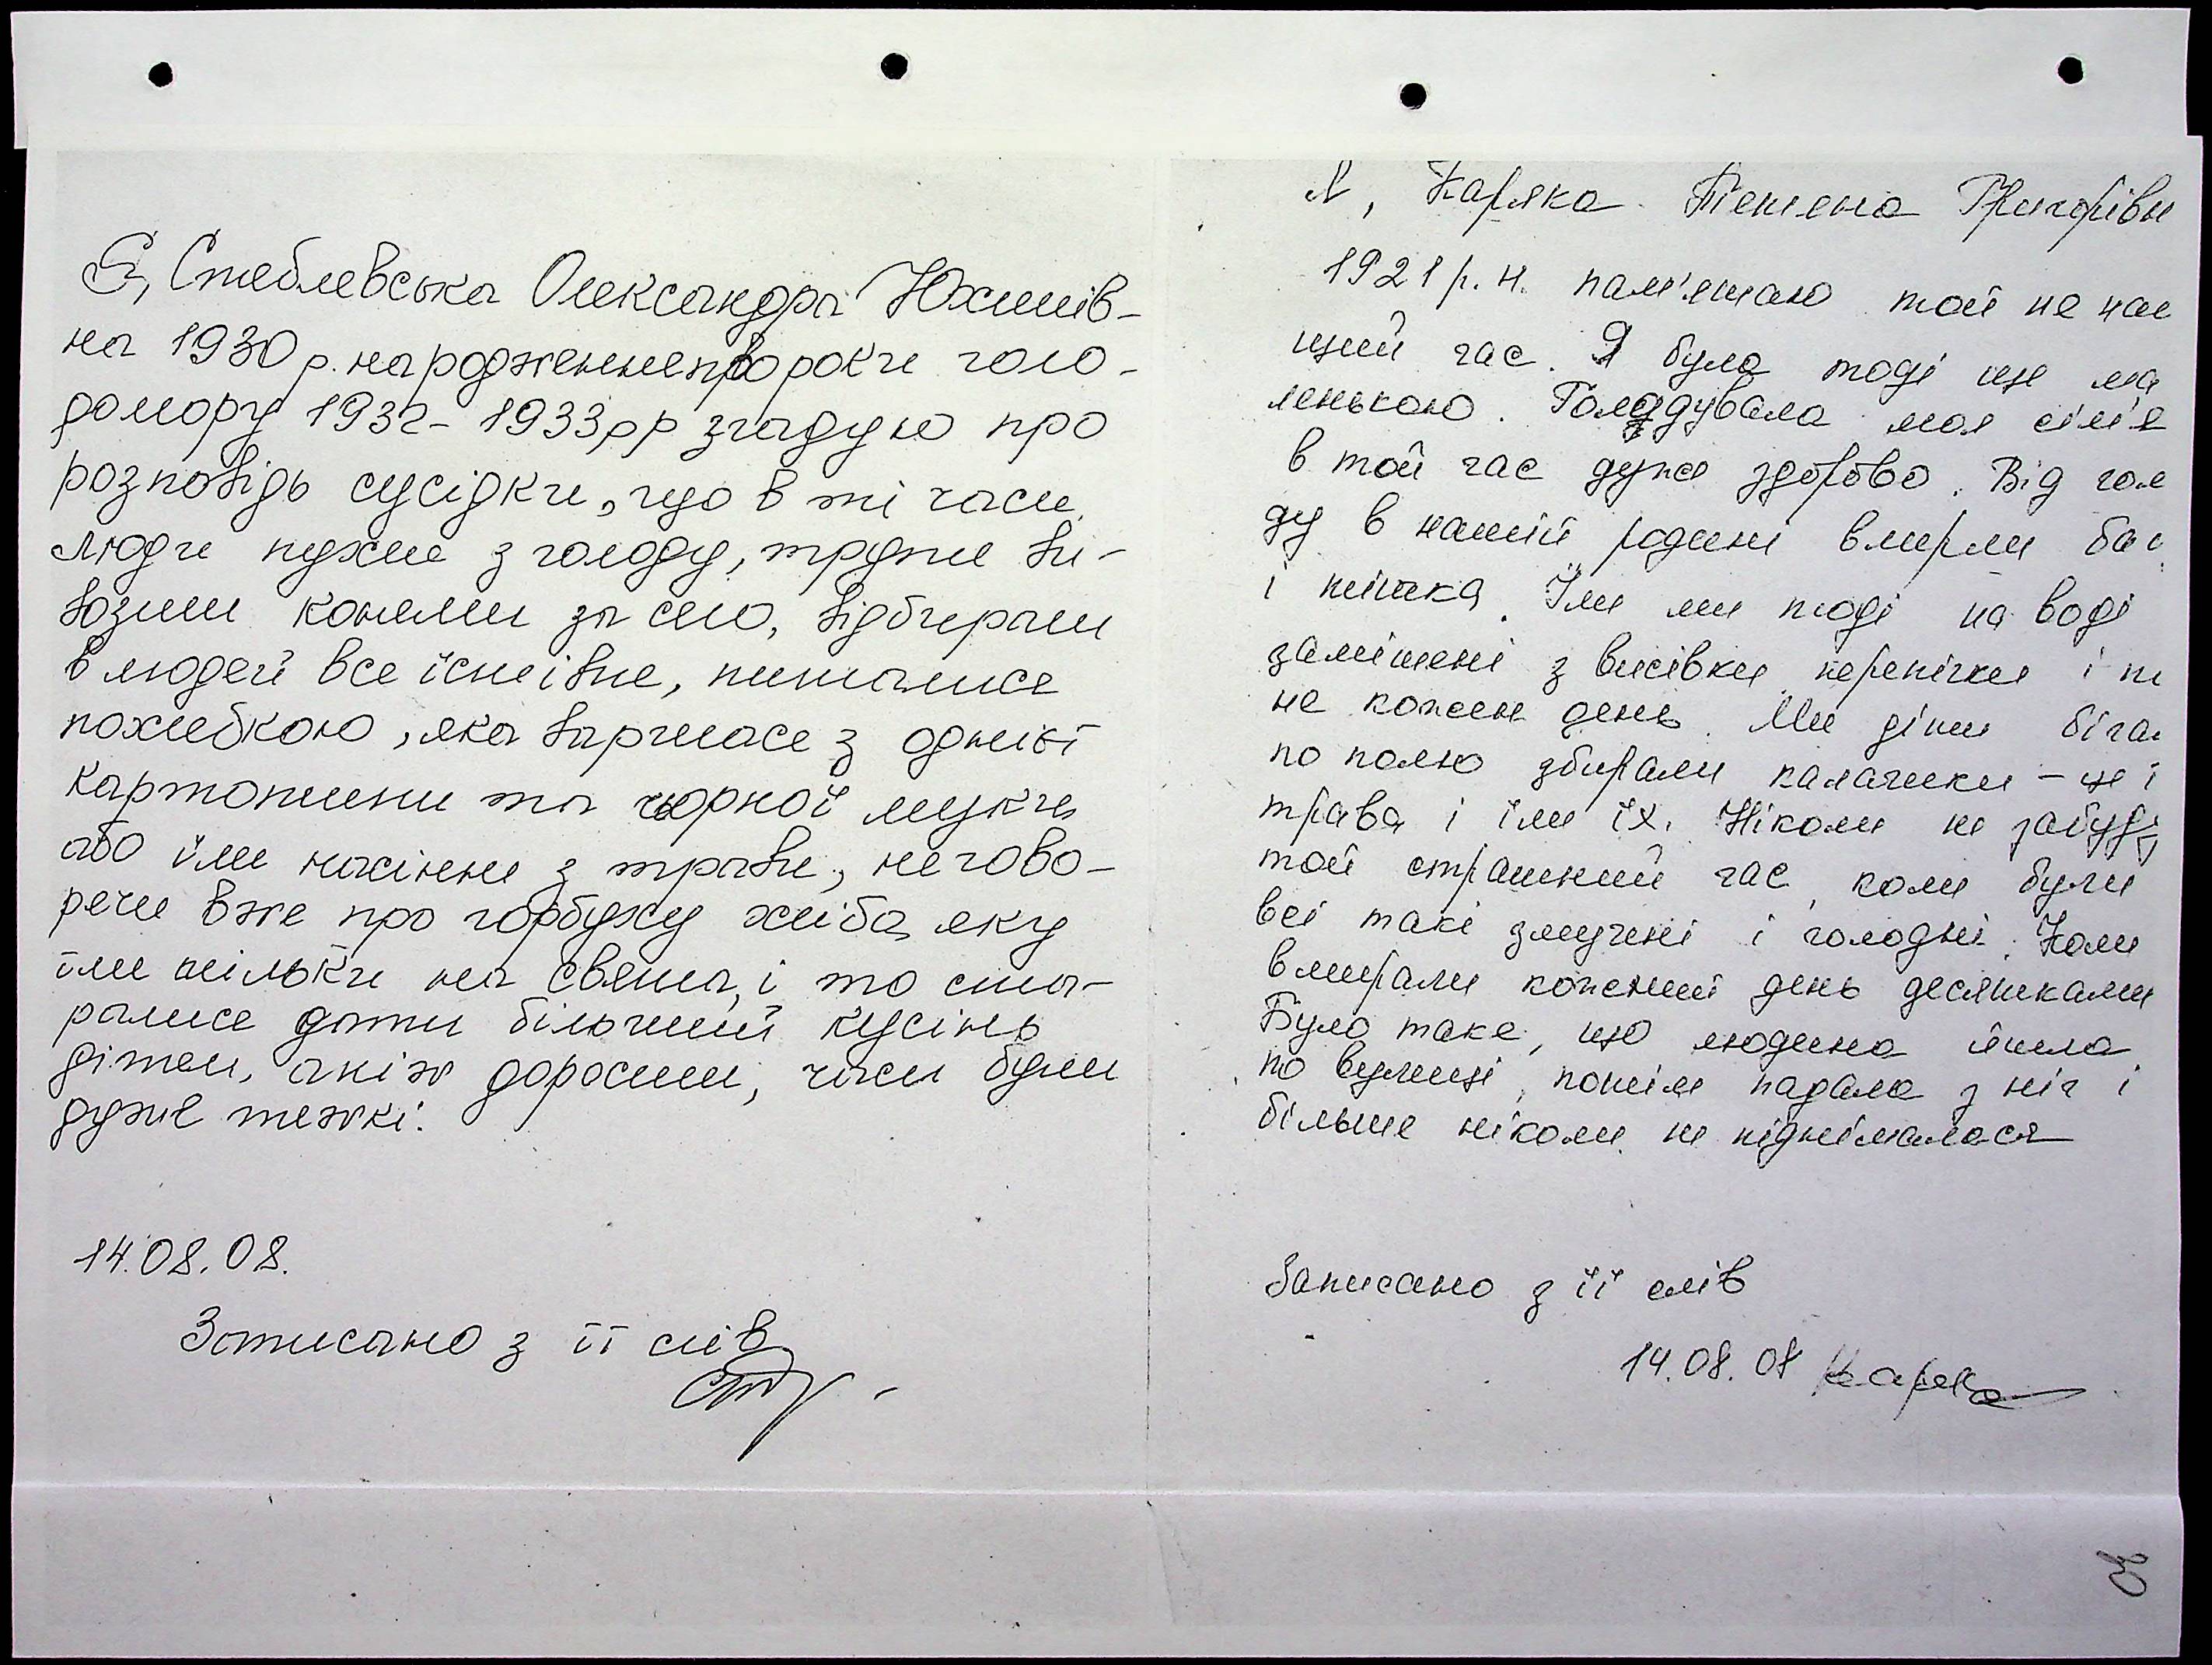 Я, Стеблевська Олександра Юхимів-
на 1930 р. народження про роки голо-
домору 1932-1933 рр згадую про
розповідь сусідки, що в ті часи
люди пухли з голоду, трупи ви-
возили кон'ями за село, відбирали
в людей все їснівне, питалися
похлебкою, яка варилася з однієї
картоплини та чорної муки,
або їли насіння з трави, не гово-
речи вже про горбушку хліба, яку
їли тільки на свята, і то ста-
ралися дати більший кусінь
дітем, аніж дорослим, часи були
дуже тяжкі.
14.08.08.
Записано з її слів
Я, Каряка Тетяна Григорівн
1921 р. н. пам'ятаю той не
щий час. Я була тоді ще ма
ленькою. Голодувала моя сім'я
в той час дуже здорово. Від гол
ду в нашій родині вмерли
і тітка. Їли ми тоді на воді
замішені з висівки перепічки і
не кожен день. Ми діти біга
по полю збирали калачики - це
трава і їли їх. Ніколи не забуду
той страшний час, коли були
всі такі змучені і голодні. Коли
вмирали кожний день десятками
Було таке, що людина йшла
по вулиці, потім падала з ніг і
більше ніколи не піднімалася
Записано з її слів
14.08.08 Каряка